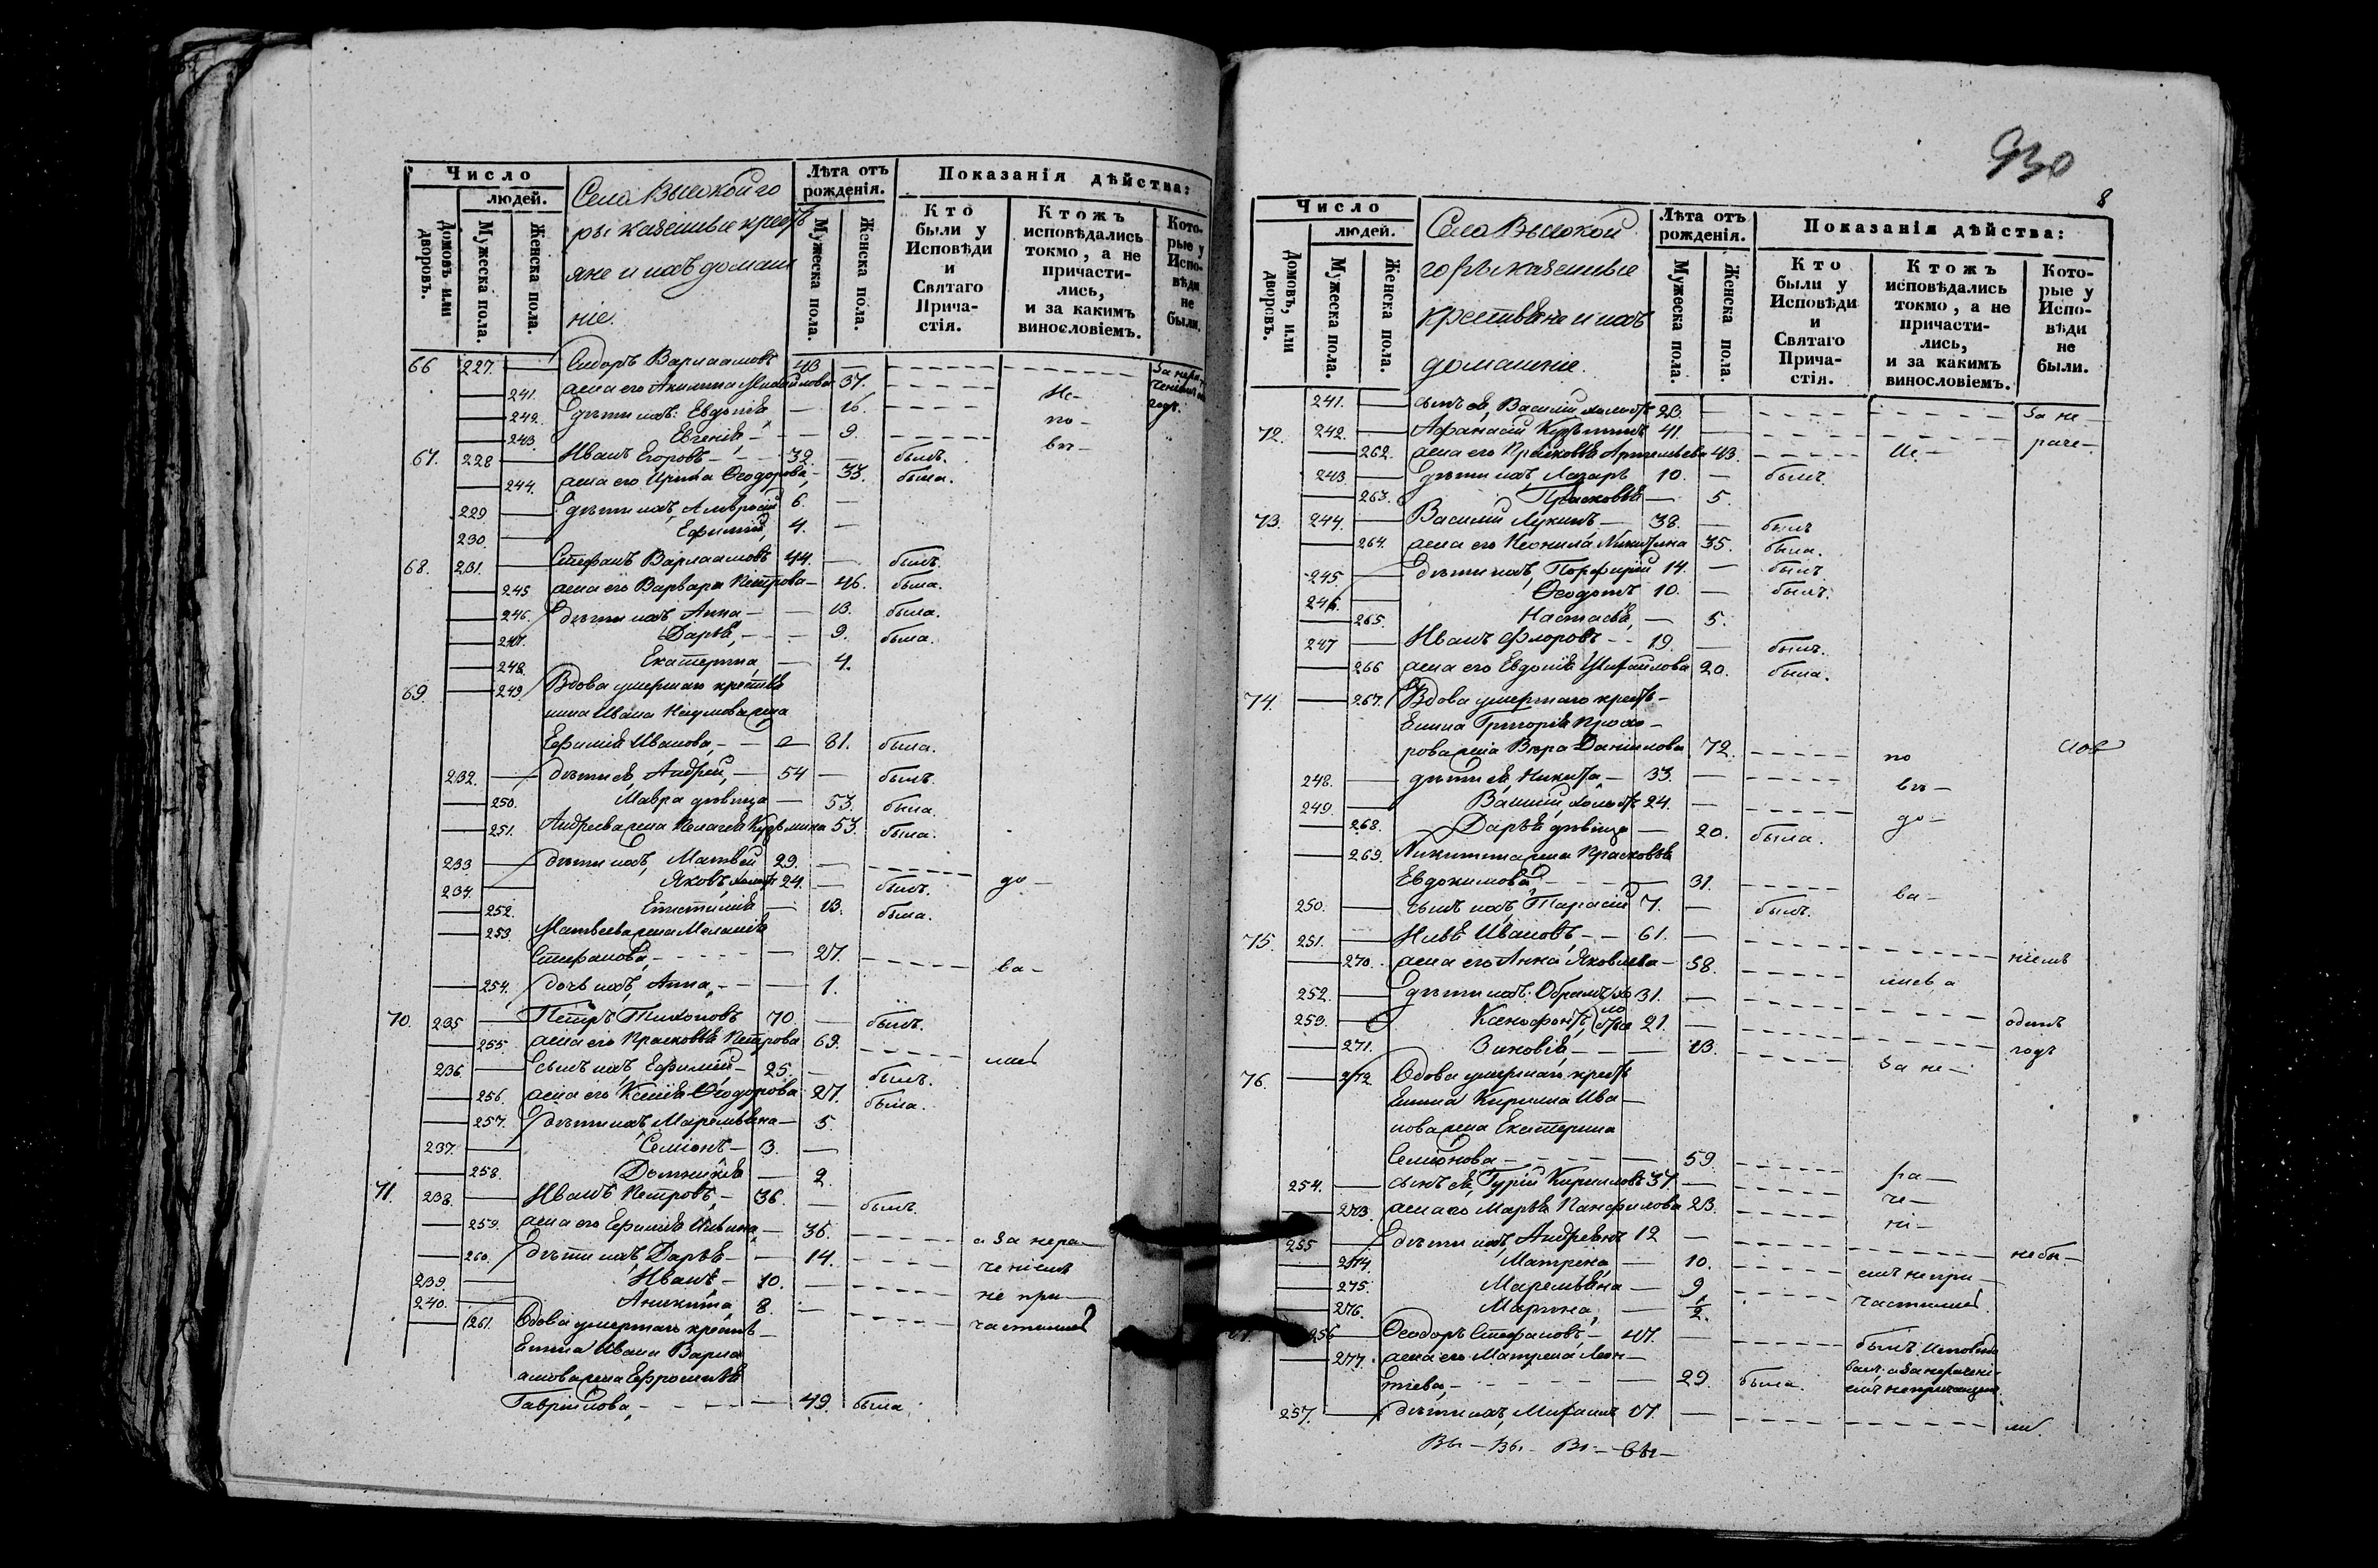 Число
людей.
Домовъ или дворовъ.
Мужеска пола.
Женска пола.
Села Высокой го
ры казенные кресть
яне и ихъ домаш
ніе.
Лѣта отъ рожденія.
Мужеска пола.
Женска пола.
Показанія дѣйства:
Кто были у Исповѣди и Святаго Прича-стія.
Ктожъ исповѣдались токмо, а не причасти-лись, и за какимъ винословіемъ.
Кото-рые у Испо-вѣди не были.
66 227. Сидоръ Варлаамовъ 43
241. жена его Акилина Михайлова 37.
242. дѣти ихъ: Евдокія 16.
243. Евгенія 9.
67. 228 Иванъ Егоровъ 32 былъ.
244. жена его Ирина Ѳеодорова 33. была.
229 дѣти ихъ, Амвросій 6.
230. Ефимій 4.
68. 231. Стефанъ Варлаамовъ 44. былъ.
245 жена его Варвара Петрова 46. была.
246. дѣти ихъ Анна 13. была.
247. Дарья 9. была.
248. Екатерина 4.
69. 249 Вдова умершаго крестья
нина Ивана Наумова жена
Ефимія Иванова 81. была.
232. дѣти ея, Андрей 54 былъ.
250. Мавра дѣвица 53. была
251. Андреева жена Пелагея Кузьмина 53. была.
233 дѣти ихъ, Матвей 29.
234. Яковъ холостъ 24. былъ.
252. Епистимія 13. была.
253. Матвеева жена Меланія
Стефанова 27.
254. дочь ихъ, Анна 1.
70. 235 Петръ Тихоновъ 70 былъ.
255. жена его Прасковья Петрова 69.
236. сынъ ихъ Ефимій 25. былъ.
256. жена его Ксенія Ѳеодорова 27. была.
257. дѣти ихъ Маремьяна 5.
237. Семіонъ 3.
258. Домникія 2.
71. 238. Иванъ Петровъ 36. былъ.
259. жена его Ефимія Ильина 36.
260. дѣти ихъ Дарья 14.
239. Иванъ 10.
240. Аникита 8.
261. Вдова умершаго кресть-
янина Ивана Варла
амова жена Ефросинья
Гаврилова 49. была.
Не-
по-
вѣ-
до-
ва-
лись
а за нера-
ченіемъ
не при-
частились
930
8
Число
людей.
Домовъ, или дворовъ.
Мужеска пола.
Женска пола.
Села Высокой
горы казенные
крестьяне и ихъ
домашніе.
Лѣта отъ рожденія.
Мужеска пола.
Женска пола.
Показанія дѣйства:
Кто были у Исповѣди и Святаго Прича-стія.
Ктожъ исповѣдались токмо, а не причасти-лись, и за какимъ винословіемъ.
Кото-рые у Испо-вѣди не были.
241. сынъ ея, Василій холостъ 23.
72. 242. Афанасій Кузьминъ 41.
262. жена его Прасковья Артемьева 43.
243. дѣти ихъ, Лазарь 10. былъ
263. Прасковья 5.
73. 244. Василій Лукинъ 38. былъ
264. жена его Неонила Никитина 35. была.
245. дѣти ихъ, Порфирій 14. былъ
246. Ѳеодотъ 10. былъ.
265. Настасья 5.
247 Иванъ Флоровъ 19. былъ.
266 жена его Евдокія Михайлова 20. была.
74. 267. Вдова умершаго кресть-
янина Григорія Прохо-
рова жена Вѣра Данилова 72.
248. дѣти ея, Никита 33.
249. Василій, холостъ 24.
268. Дарья дѣвица 20. была.
269. Никитина жена Прасковья
Евдокимова 31.
250. сынъ ихъ, Тарасій 7. былъ.
75. 251. Илья Ивановъ 61.
270. жена его Анна Яковлева 58.
252. дѣти ихъ: Абрамъ 31.
253. Ксенофонтъ 21.
271. Зиновія 13.
76. 272 Вдова умершаго кресть
янина Кирилла Ива-
нова жена Екатерина
Семіонова 59.
254. сынъ ея, Гурій Кирилловъ 37.
273. жена его Марья Панфилова 23.
255 дѣти ихъ, Андреянъ 12
274. Матрена 10.
275. Маремьяна 9
276. Марина 1/2.
256 Ѳеодоръ Стефановъ 47.
277. жена его Матрена Леон-
тіева 29. была.
257. дѣти ихъ, Михаилъ 17.
За не-
раче-
ніемъ
одинъ
годъ
не бы-
ли.
Ис-
по
вѣ-
до-
ва-
лись а
за не-
ра-
че-
ні-
емъ не при-
частились.